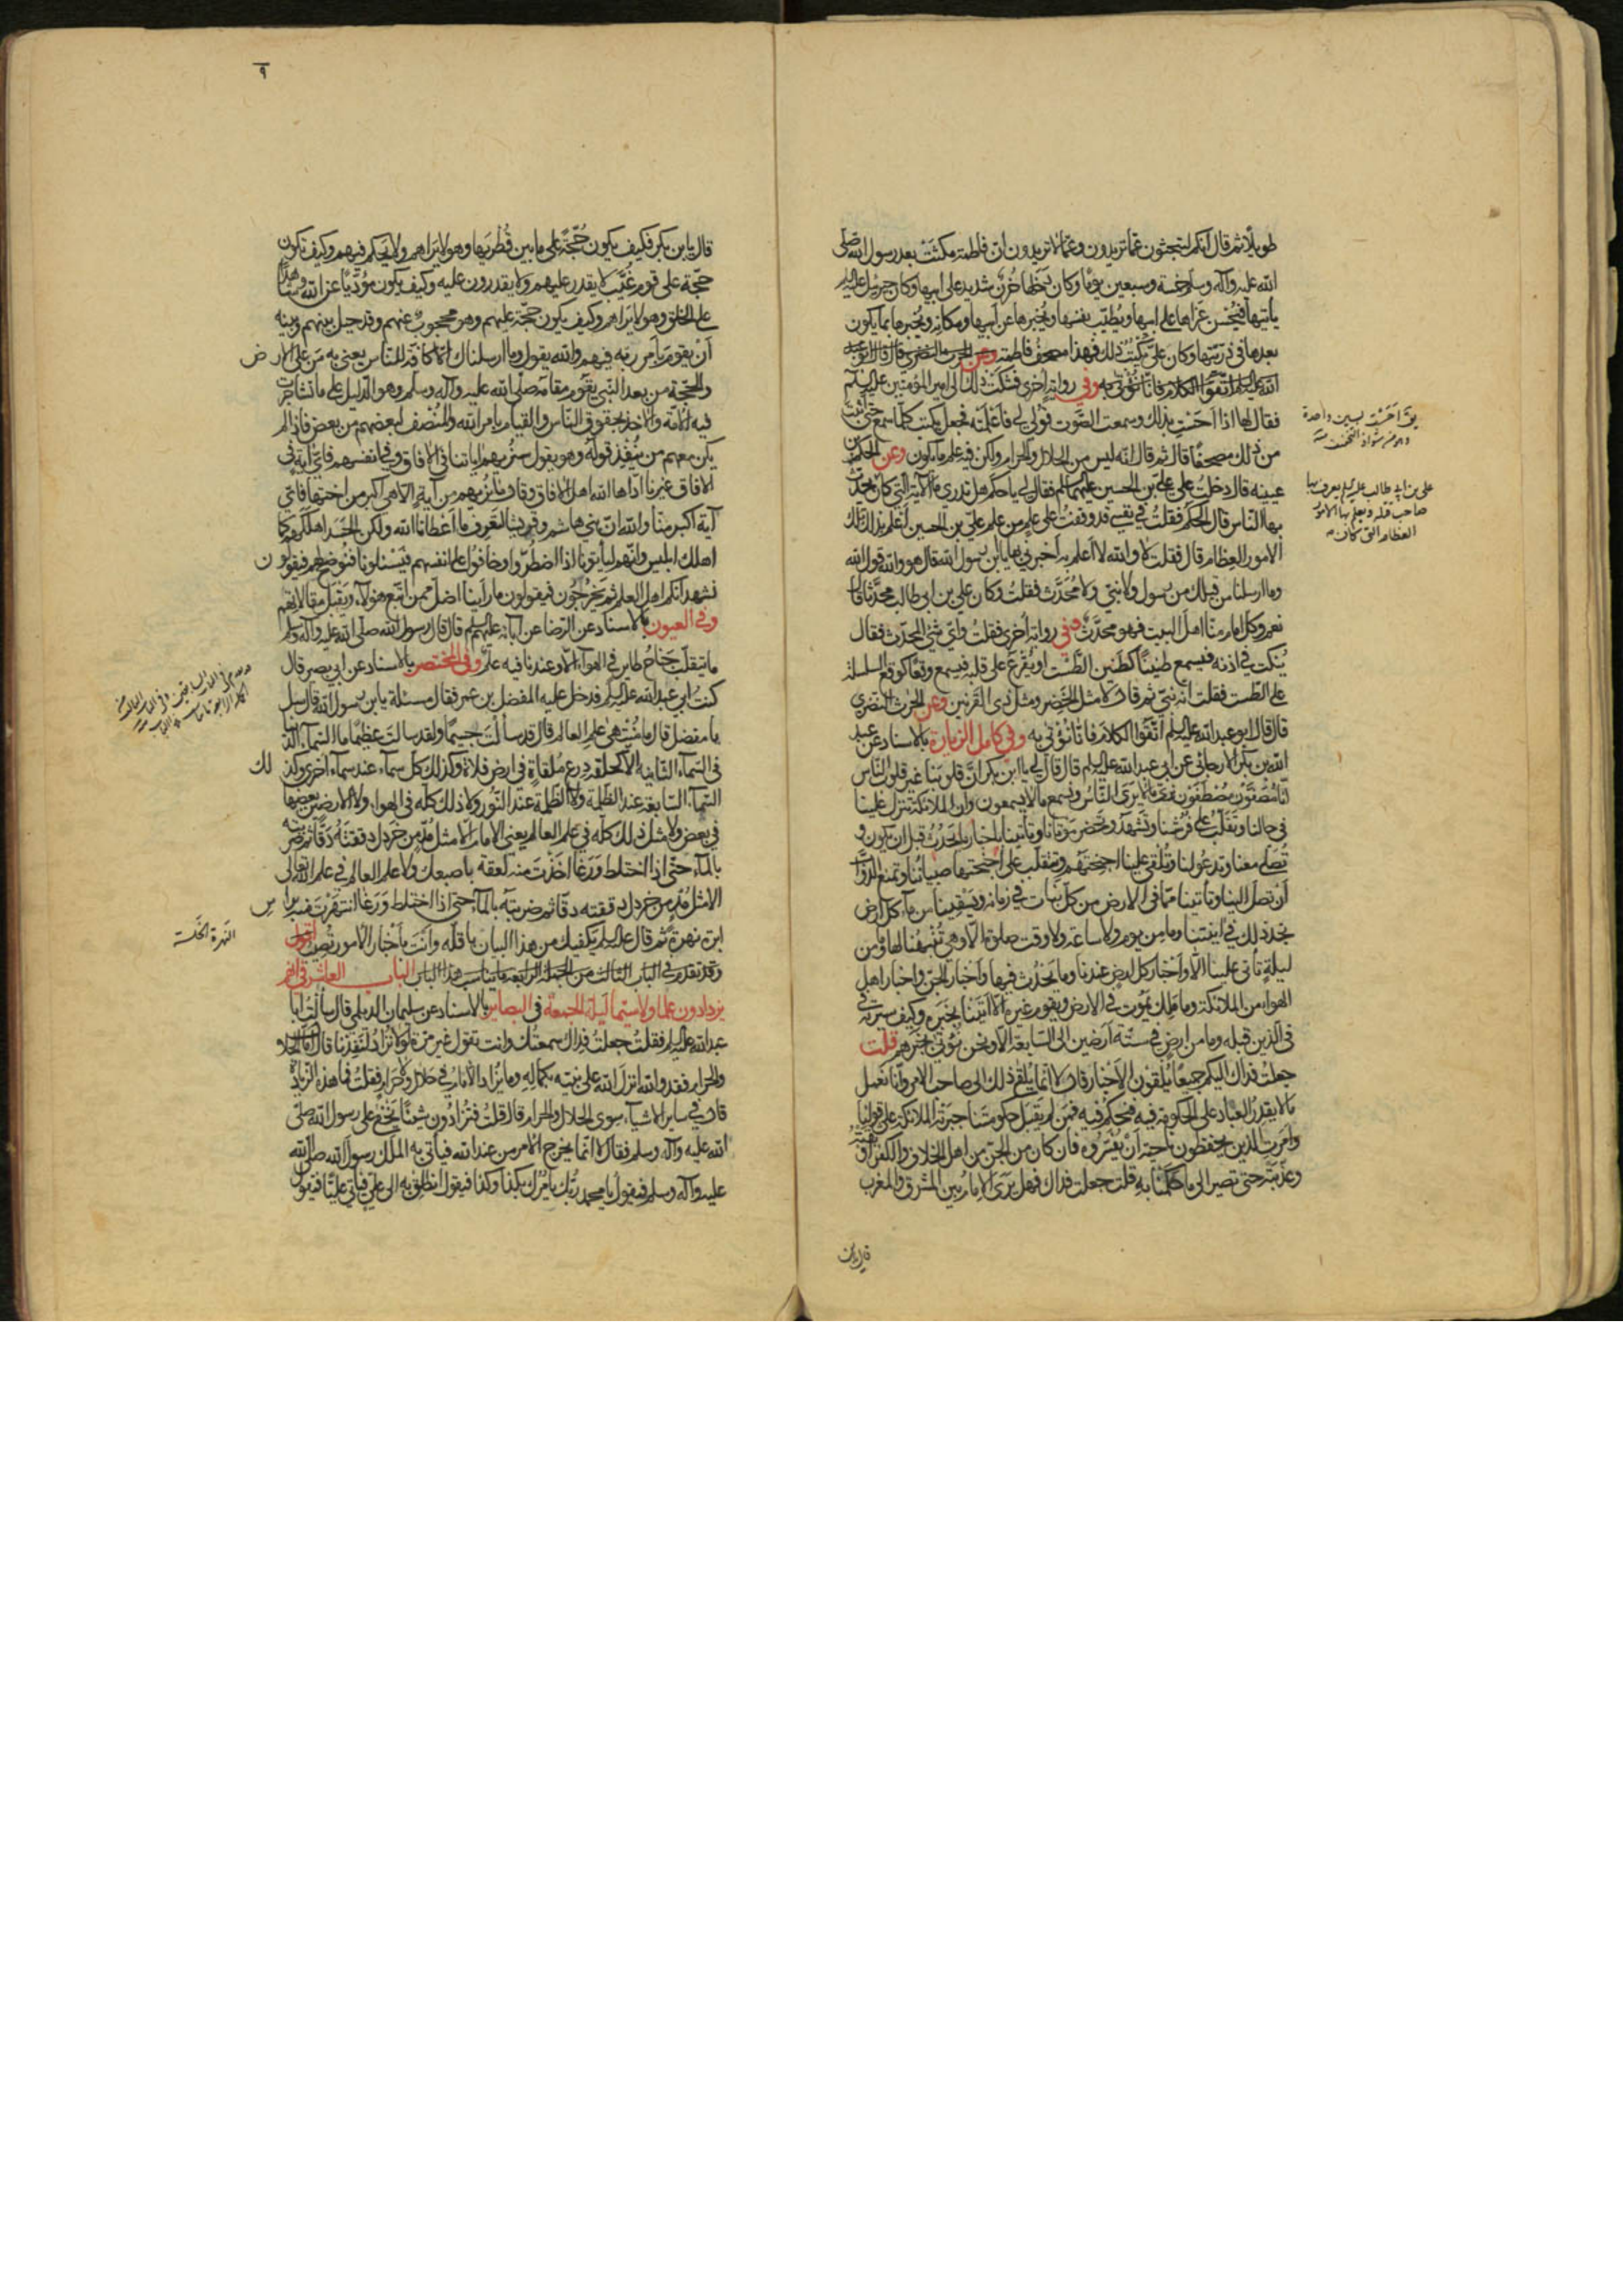 طويلا ثم قال انكم لتبحثون عما تريدون وعما لا تريدون ان فاطمة مكثت بعد رسول الله صلى
الله عليه وآله وسلم خمسة وسبعين يوما وكان دخلها حزن شديد على ابيها وكان جبرئيل عليه السلم
يأتيها فيحسن عزاها على ابيها ويطيب نفسها ويخبرها عن ابيها ومكانه ويخبرها بما يكون
بعدها في ذريتها وكان علي يكتب ذلك فهذا مصحف فاطمة وعن الحرث النضري قال قال ابو عبد
الله عليه السلم اتقوا الكلام فانا نؤتى به وفي رواية اخرى فشكت ذلك الى امير المؤمنين عليه السلم
فقال لها اذا احست بذلك وسمعت الصوت قولي لي فاعلمته فجعل يكتب كلما سمع حتى اثبت
من ذلك مصحفا قال ثم قال انه ليس من الحلال والحرام ولكن فيه علم ما يكون وعن الحكم بن
عيينه قال دخلت على علي بن الحسين عليهما السلم فقال لي يا حكم هل تدري ما الاية التي كان يحدث
بها الناس قال الحكم فقلت في نفسي قد وقفت على علم من علم علي بن الحسين اعلم بذلك تلك
الامور العظام قال فقلت لا والله لا اعلم به اخبرني بها يا ابن رسول الله قال هو والله قول الله
وما ارسلنا من قبلك من رسول ولا نبي ولا محدث فقلت وكان علي بن ابي طالب محدثا قال
نعم وكل امام منا اهل البيت فهو محدث وفي رواية اخرى فقلت واي شئ المحدث فقال
ينكت في اذنه فيسمع طنينا كطنين الطست او يقرع على قلبه فيسمع وقعا كوقع السلسلة
على الطست فقلت انه نبي ثم قال لا مثل الخضر ومثل ذي القرنين وعن الحرث النضري
قال قال ابو عبد الله عليه السلم اتقوا الكلام فانا نؤتى به وفي كامل الزيارة بالاسناد عن عبد
الله بن بكر الارجاني عن ابي عبد الله عليه السلم قال قال لي يا ابن بكر ان قلوبنا غير قلوب الناس
انا مصفون مصطفون نرى ما لا يرى الناس ونسمع ما لا يسمعون وان الملائكة تنزل علينا
في رحالنا وتقلب على فرشنا وتشهد وتحضر موتانا وتأتينا باخبار ما يحدث قبل ان يكون و
تصلي معنا وتدعو لنا وتلقي علينا اجنحتهم وتتقلب على اجنحتها صبياننا وتمنع الدواب
ان تصل الينا وتأتينا مما في الارض من كل نبات في زمانه وتسقينا من ماء كل ارض
نجد ذلك في انيتنا وما من يوم ولا ساعة ولا وقت صلوة الا وهي تنبهنا لها وما من
ليلة تأتي علينا الا واخبار كل ارض عندنا وما يحدث فيها واخبار الجن واخبار اهل
الهواء من الملائكة وما ملك يموت في الارض ويقوم غيره الا اتينا بخبره وكيف سيرته في
في الذين قبله وما من ارض في ستة ارضين الى السابعة الا ونحن نؤتى بخبرهم قلت
جعلت فداك اليكم جميعا يلقون الاخبار قال لا انما يلقى ذلك الى صاحب الامر وانا نحمل
ما لا يقدر العباد على الحكومة فيه فنحكم فيه فمن لم يقبل حكومتنا جبرته الملائكة على قولنا
وامرت الذين يحفظون ناحيته ان يقسروه فان كان من الجن من اهل الخلاف والكفر اوثقته
وعذبته حتى تصير الى ما حكمنا به قلت جعلت فداك فهل يرى الامام بين المشرق والمغرب
علي بن ابي طالب عليه السلم يعرف بها
صاحب قتله ويعلم بها الامور
العظام التي كان
قال يا بن
٩
قال يا بن بكر فكيف يكون حجة على ما بين قطريها وهو لا يراهم ولا يحكم فيهم وكيف تكون
حجة على قوم غيب لا يقدر عليهم ولا يقدرون عليه وكيف يكون مؤديا عن الله وشاهدا
على الخلق وهو لا يراهم وكيف يكون حجة عليهم وهو محجوب عنهم وقد حيل بينهم وبينه
ان يقوم بامر ربه فيهم والله يقول وما ارسلناك الا كافة للناس يعني به من على الارض
والحجة من بعد النبي يقوم مقامه صلى الله عليه وآله وسلم وهو الدليل على ما تشاجرت
فيه الامة والاخذ بحقوق الناس والقيام بامر الله والمنصف لبعضهم من بعض فاذا لم
يكن معهم من ينفذ قوله وهو يقول سنريهم اياتنا في الافاق وفي انفسهم فاي اية في
الافاق غيرنا اراها الله اهل الافاق وقال وما نريهم من آية الا هي اكبر من اختها فاي
آية اكبر منا والله ان بني هاشم وقريشا لتعرف ما اعطانا الله ولكن الحسد اهلكهم كما
اهلك ابليس وانهم ليأتونا اذا اضطروا وخافوا على انفسهم فيسئلونا فنوضح لهم فيقولون
نشهد انكم اهل العلم ثم يخرجون فيقولون ما راينا اضل ممن اتبع هؤلاء ويقبل مقالاتهم
وفي العيون بالاسناد عن الرضا عن آبائه عليهم السلم قال قال رسول الله صلى الله عليه وآله وسلم
ما يتقلب جناح طاير في الهواء الا وعندنا فيه علم وفي المختصر بالاسناد عن ابي بصير قال
كنت ابي عبد الله عليه السلم فدخل عليه المفضل بن عمر فقال مسئلة يا بن رسول الله قال سل
يا مفضل قال ما منتهى علم العالم قال قد سألت جسيما ولقد سألت عظيما ما السماء الدنيا
في السماء الثانية الا كحلقة درع ملقاة في ارض فلاة وكذلك كل سماء عند سماء اخرى وكذلك
السماء السابعة عند الظلمة ولا الظلمة عند النور ولا ذلك كله في الهواء ولا الارضين بعضها
في بعض ولا مثل ذلك كله في علم العالم يعني الامام الا مثل مد من خردل دققته دقا ثم ضربته
بالماء حتى اذا اختلط ورغا اخذت منه لعقة باصبعك ولا علم العالم في علم الله تعالى
الا مثل مد من خردل دققته دقا ثم ضربته بالماء حتى اذا اختلط ورغا انتهزت منه براس
ابرة نهزة ثم قال عليه السلم يكفيك من هذا البيان باقله وانت باخبار الامور تصيب اقول
وقد تقدم في الباب الثالث من الجملة الرابعة ما يناسب هذا الباب الباب العاشر في انهم
يزدادون علما ولا سيما ليلة الجمعة في البصاير بالاسناد عن سليمان الديلمي قال سألت ابا
عبد الله عليه السلم فقلت جعلت فداك سمعتك وانت تقول غير مرة لولا انا نزاد لنفدنا قال اما الحلال
والحرام فقد والله انزل الله على نبيه بكماله وما يزاد الامام في حلال ولا حرام فقلت فما هذه الزيادة
قال في ساير الاشياء سوى الحلال والحرام قال قلت فتزادون شيئا يخفى على رسول الله صلى
الله عليه وآله وسلم فقال لا انما يخرج الامر من عند الله فيأتي به الملك رسول الله صلى الله
عليه وآله وسلم فيقول يا محمد ربك يأمرك بكذا وكذا فيقول انطلق به الى علي فيأتي عليا فيقول
النهزة الخلسة